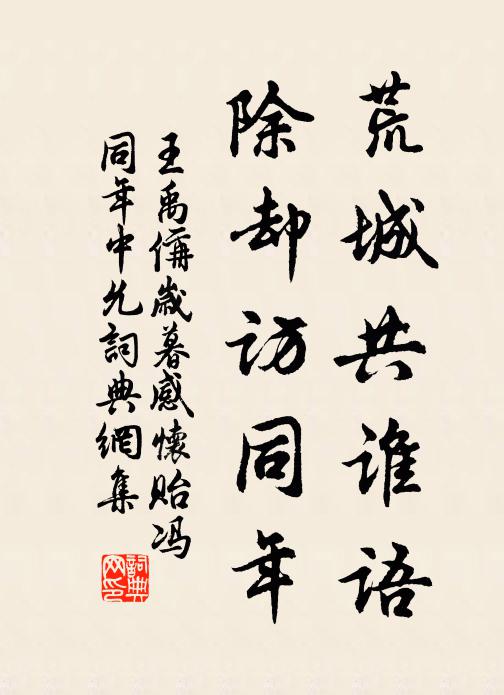 荒城共谁语
除却访同年
王禹偁歳暮感懷貽冯
同年中允詞典網集
詞典网印